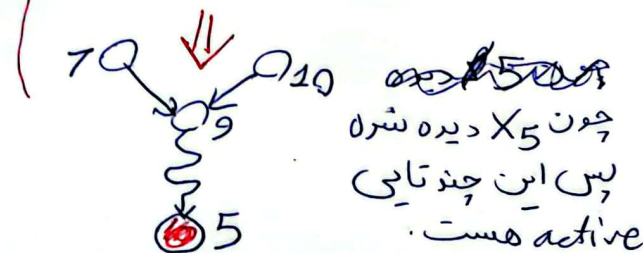 7
10
9
چون X5 دیده شده
پس این چندتایی
5
active هست.